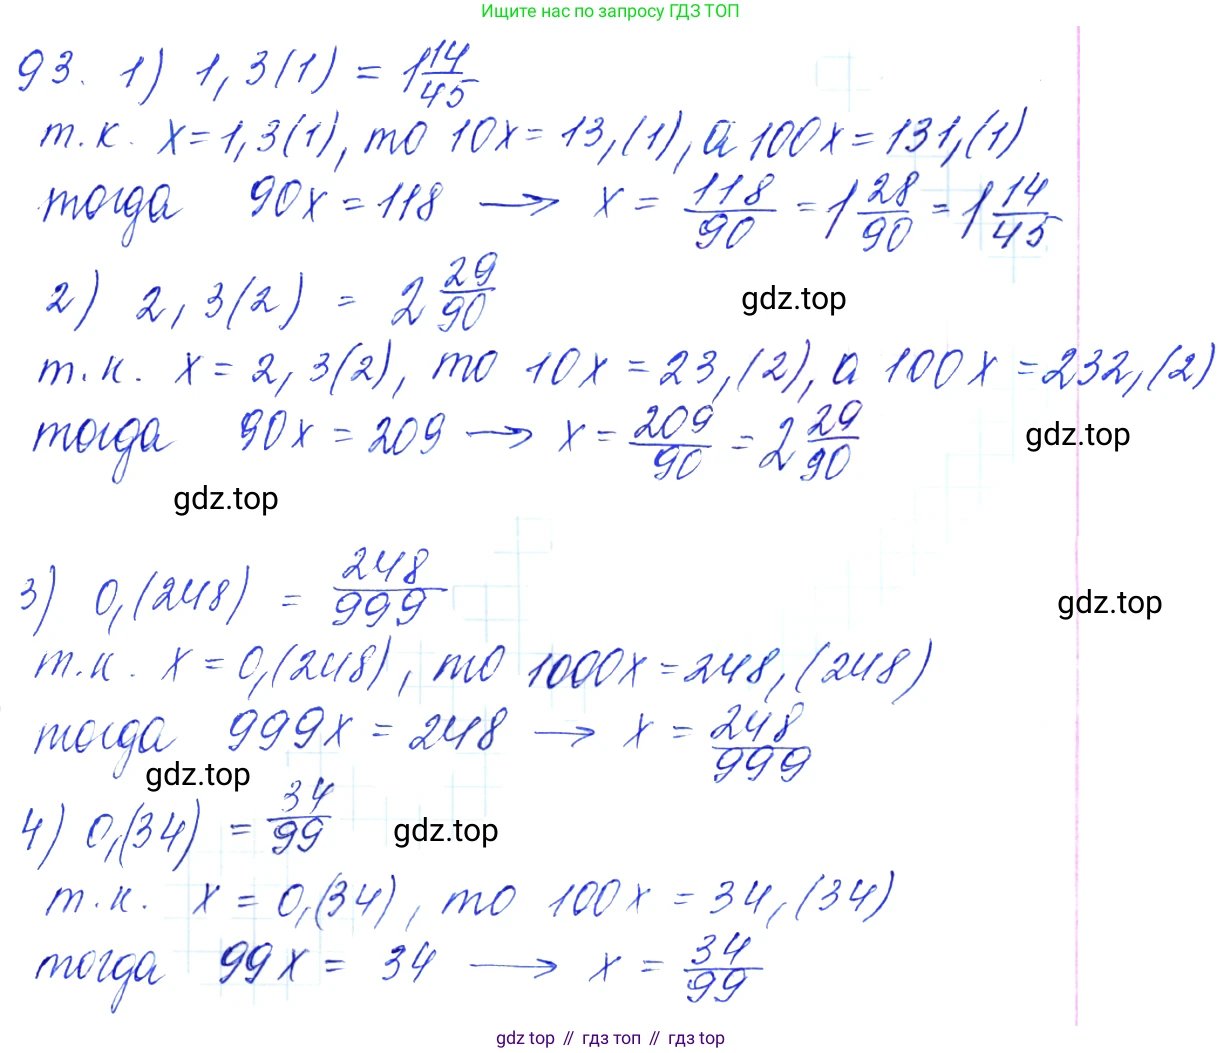 Ищите нас по запросу ГДЗ ТОП
93. 1) 1,3(1) = 1 14/45
т.к. x=1,3(1), то 10x = 13,(1), а 100x = 131,(1)
тогда 90x = 118 → x = 118/90 = 1 28/90 = 1 14/45
2) 2,3(2) = 2 29/90
gdz.top
т.к. x = 2,3(2), то 10x = 23,(2), а 100x = 232,(2)
тогда 90x = 209 → x = 209/90 = 2 29/90
gdz.top
gdz.top
3) 0,(248) = 248/999
gdz.top
т.к. x = 0,(248), то 1000x = 248,(248)
тогда 999x = 248 → x = 248/999
gdz.top
4) 0,(34) = 34/99
gdz.top
т.к. x = 0,(34), то 100x = 34,(34)
тогда 99x = 34 → x = 34/99
gdz top // гдз топ // гдз top